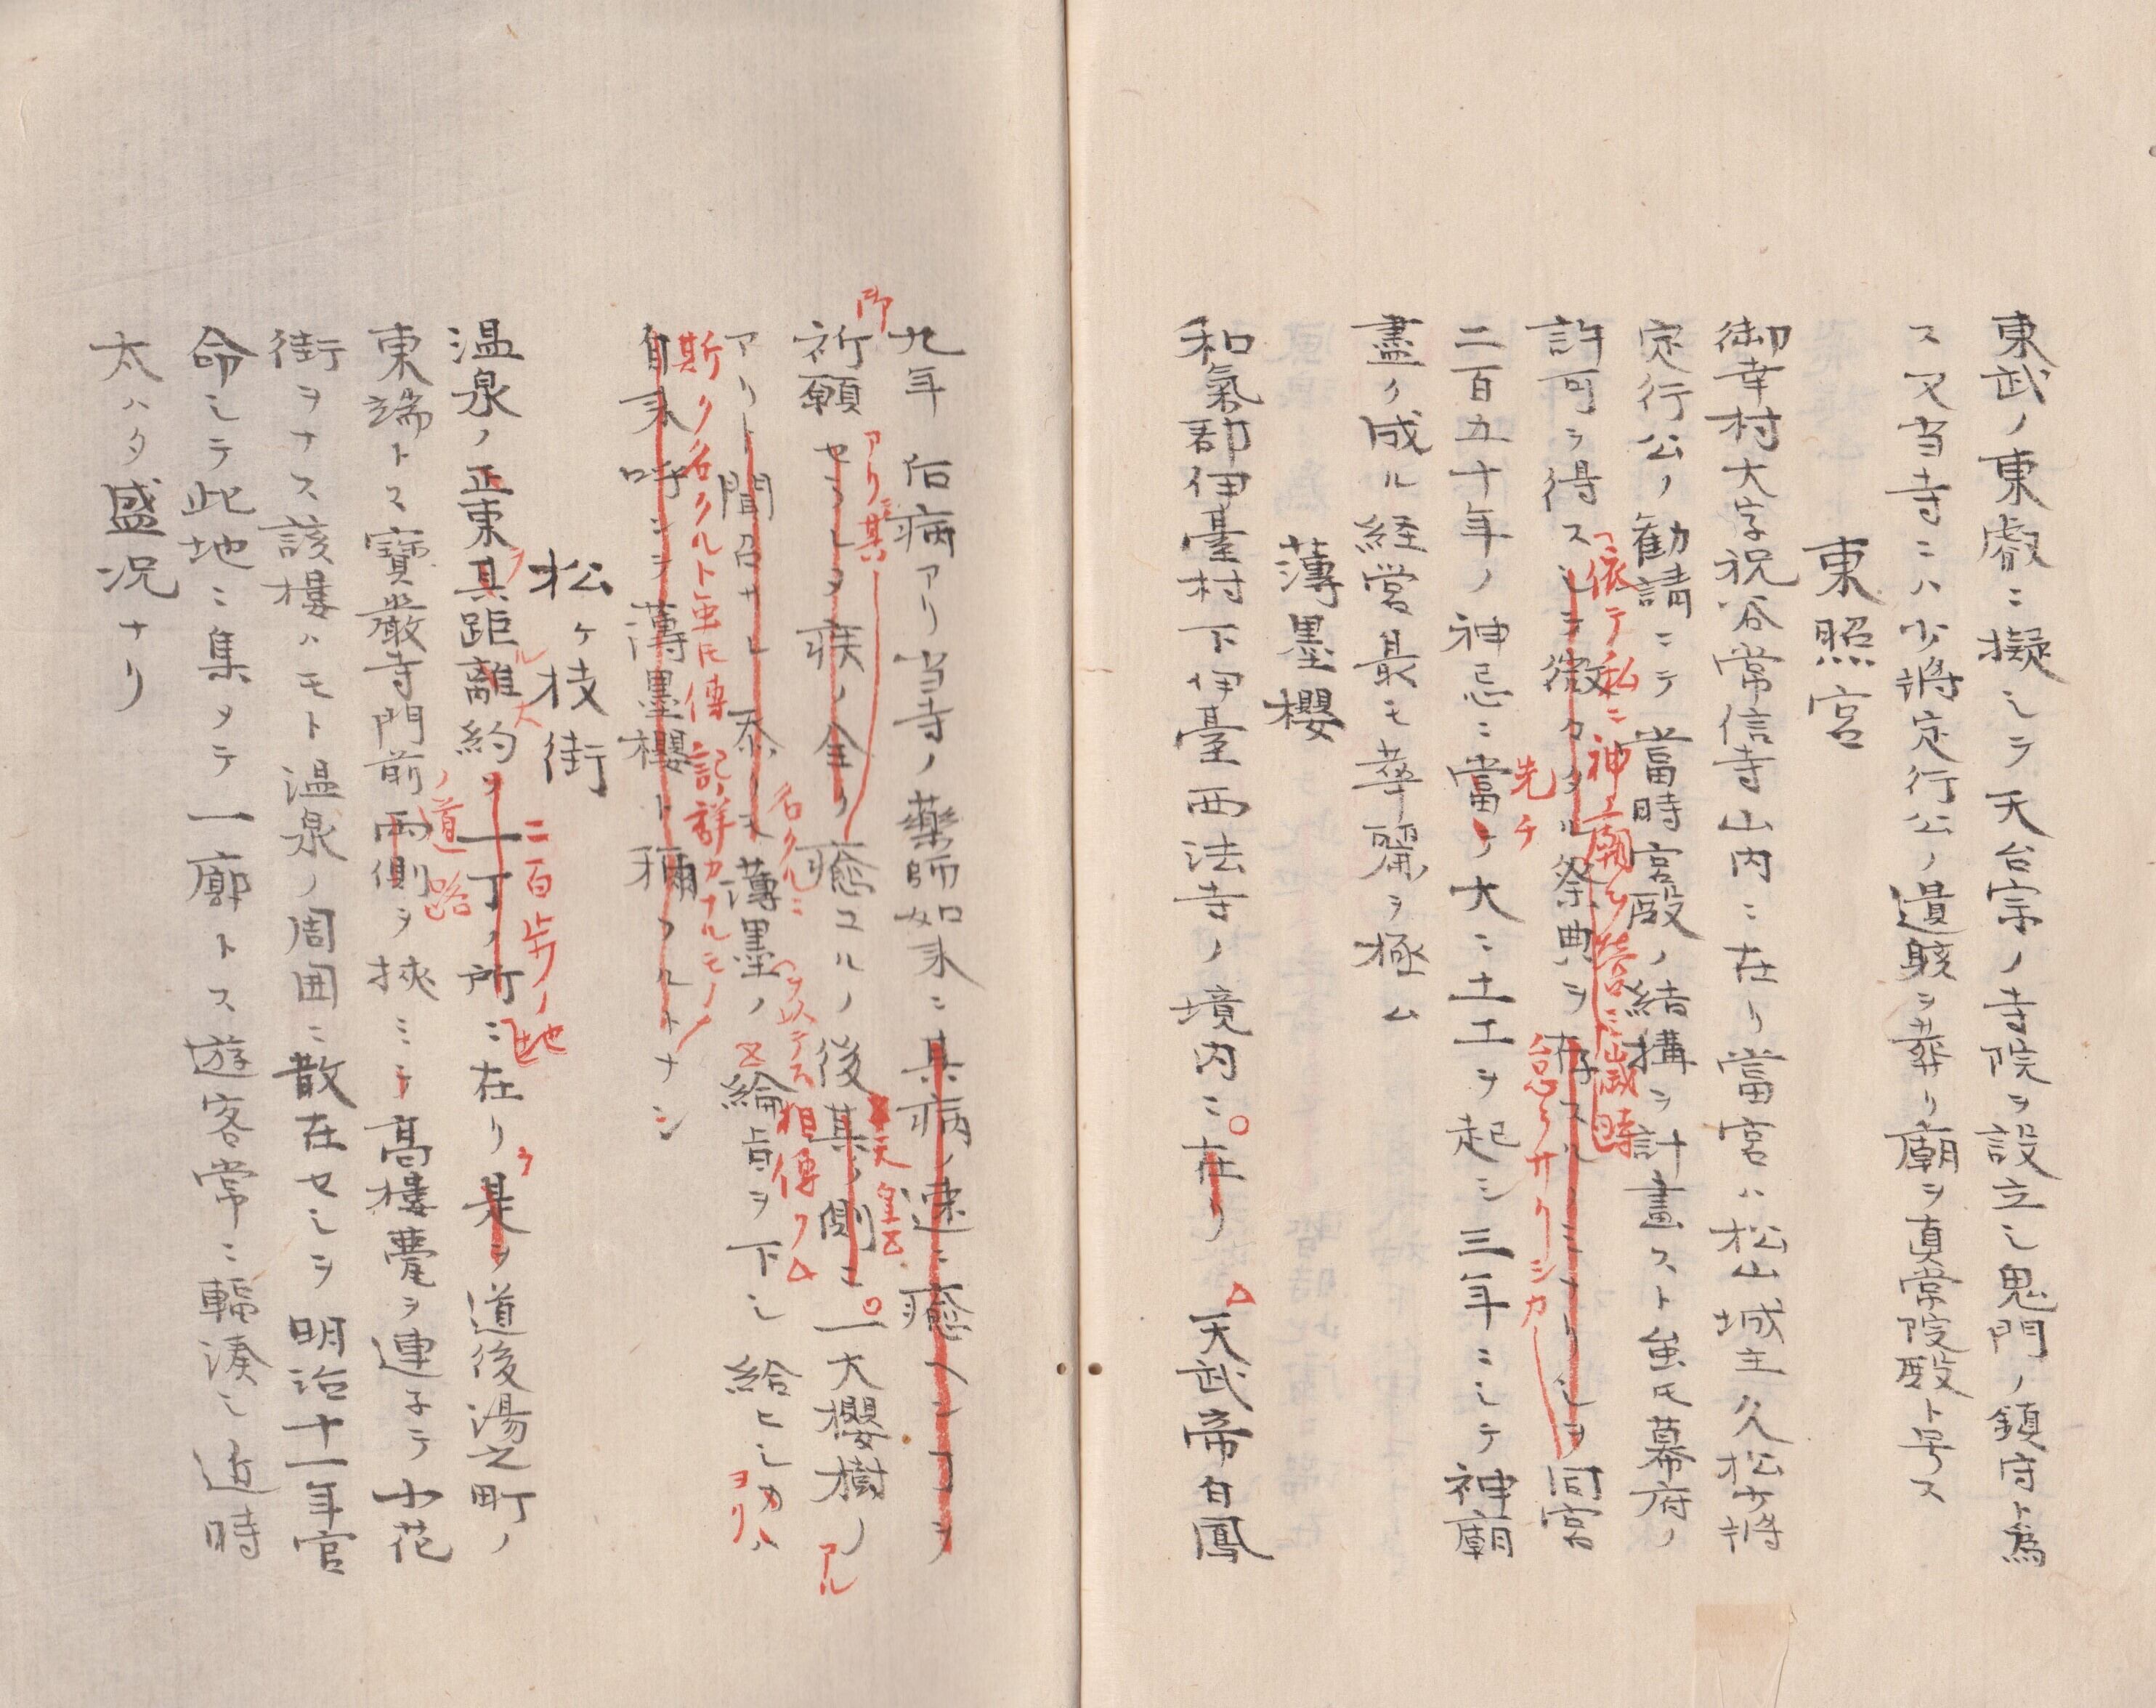 東武ノ東叡ニ擬シテ天台宗ノ寺院ヲ設立シ鬼門ノ鎮守ト為
ス又当寺ニハ少将定行公ノ遺骸ヲ葬リ廟ヲ真常院殿ト号ス
東照宮
御幸村大字祝谷常信寺山内ニ在リ當宮ハ松山城主久松少将
定行公ノ勧請ニテ當時宮殿ノ結構ヲ計畫スト虽氏幕府ノ
依テ私ニ神廟ヲ営ミ歳時
許可ヲ得スシテ微々タル祭典ヲ存スルノミナリシヲ同宮
怠ラサリシカ
先チ
二百五十年ノ神忌ニ當リ大ニ土工ヲ起シ三年ニシテ神廟
盡ク成ル経営最モ華麗ヲ極ム
薄墨櫻
和氣郡伊臺村下伊臺西法寺ノ境内ニ在リ 天武帝白鳳
九年 后病アリ当寺ノ藥師如来ニ其病ノ速ニ癒ヘンコヲ
御
アリ其
天皇
祈願セラレタ疾ノ全ク癒ユルノ後其ノ側ニ一大櫻樹ノ
アル
名クルニ
ヲ以テス相傳フ
アリト聞召サレ忝ク薄墨ノ綸旨ヲ下シ給ヒシ
ヨリ
斯ク名クルト虽氏傳記詳カナルモノ
自来呼ンテ薄墨櫻ト称フルトナシ
松ヶ枝街
二百歩ノ地
温泉ノ正東其距離約ソ一丁ノ所ニ在リ是ヲ道後湯之町ノ
ノ道路
東端トス寶嚴寺門前両側ヲ挾ミテ高樓甍ヲ連子テ小花
街ヲナス該樓ハモト温泉ノ周囲ニ散在セシヲ明治十一年官
命シテ此地ニ集メテ一廓トス遊客常ニ輻湊シ近時
太ハタ盛況ナリ